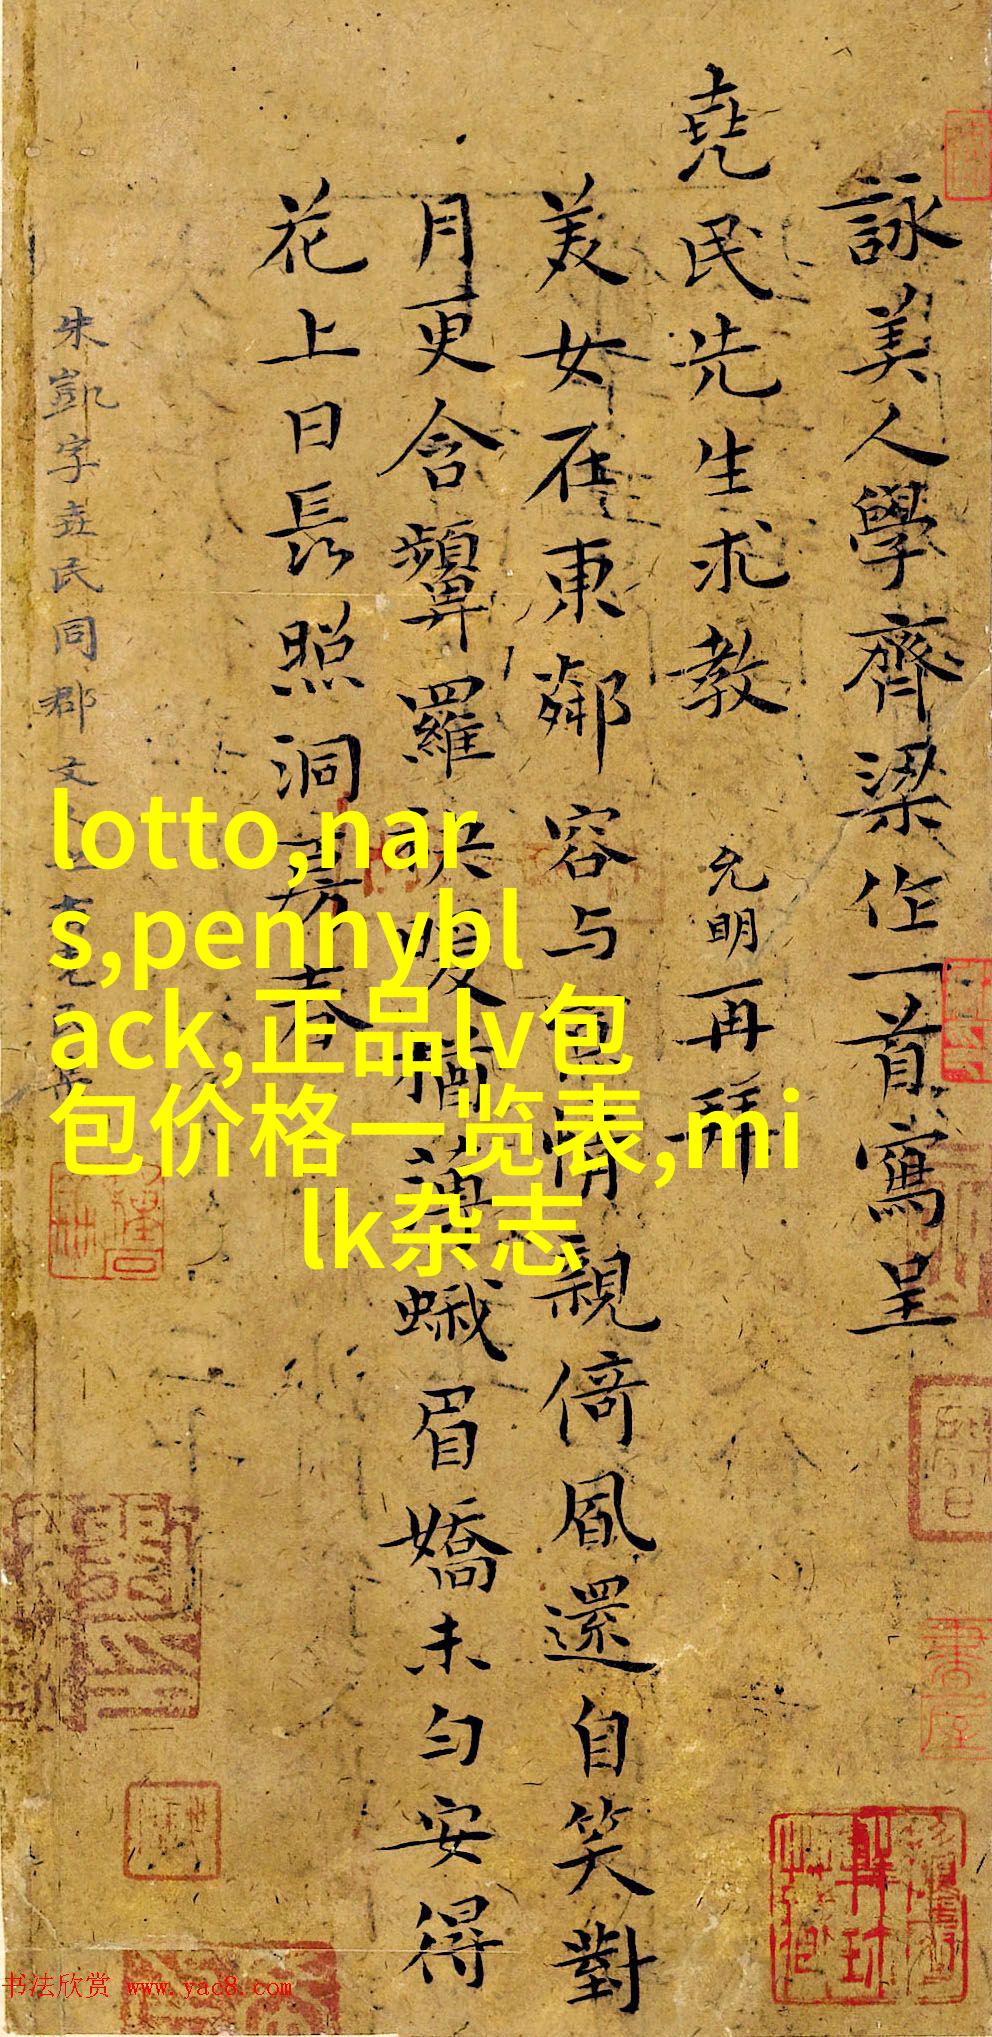 詠美人學齊梁作一首寫呈
堯民先生求教 允明再拜
美女在東鄰容与 情親倚風還自笑對
月更含顰羅袂暖 薄蛾眉嬌未匀安得
花上日長照洞房春
朱凱字堯民同郡文
lotto,nar
s,pennybl
ack,正品lv包
包价格一览表,mi
lk杂志
书法欣赏 www.yac8.com